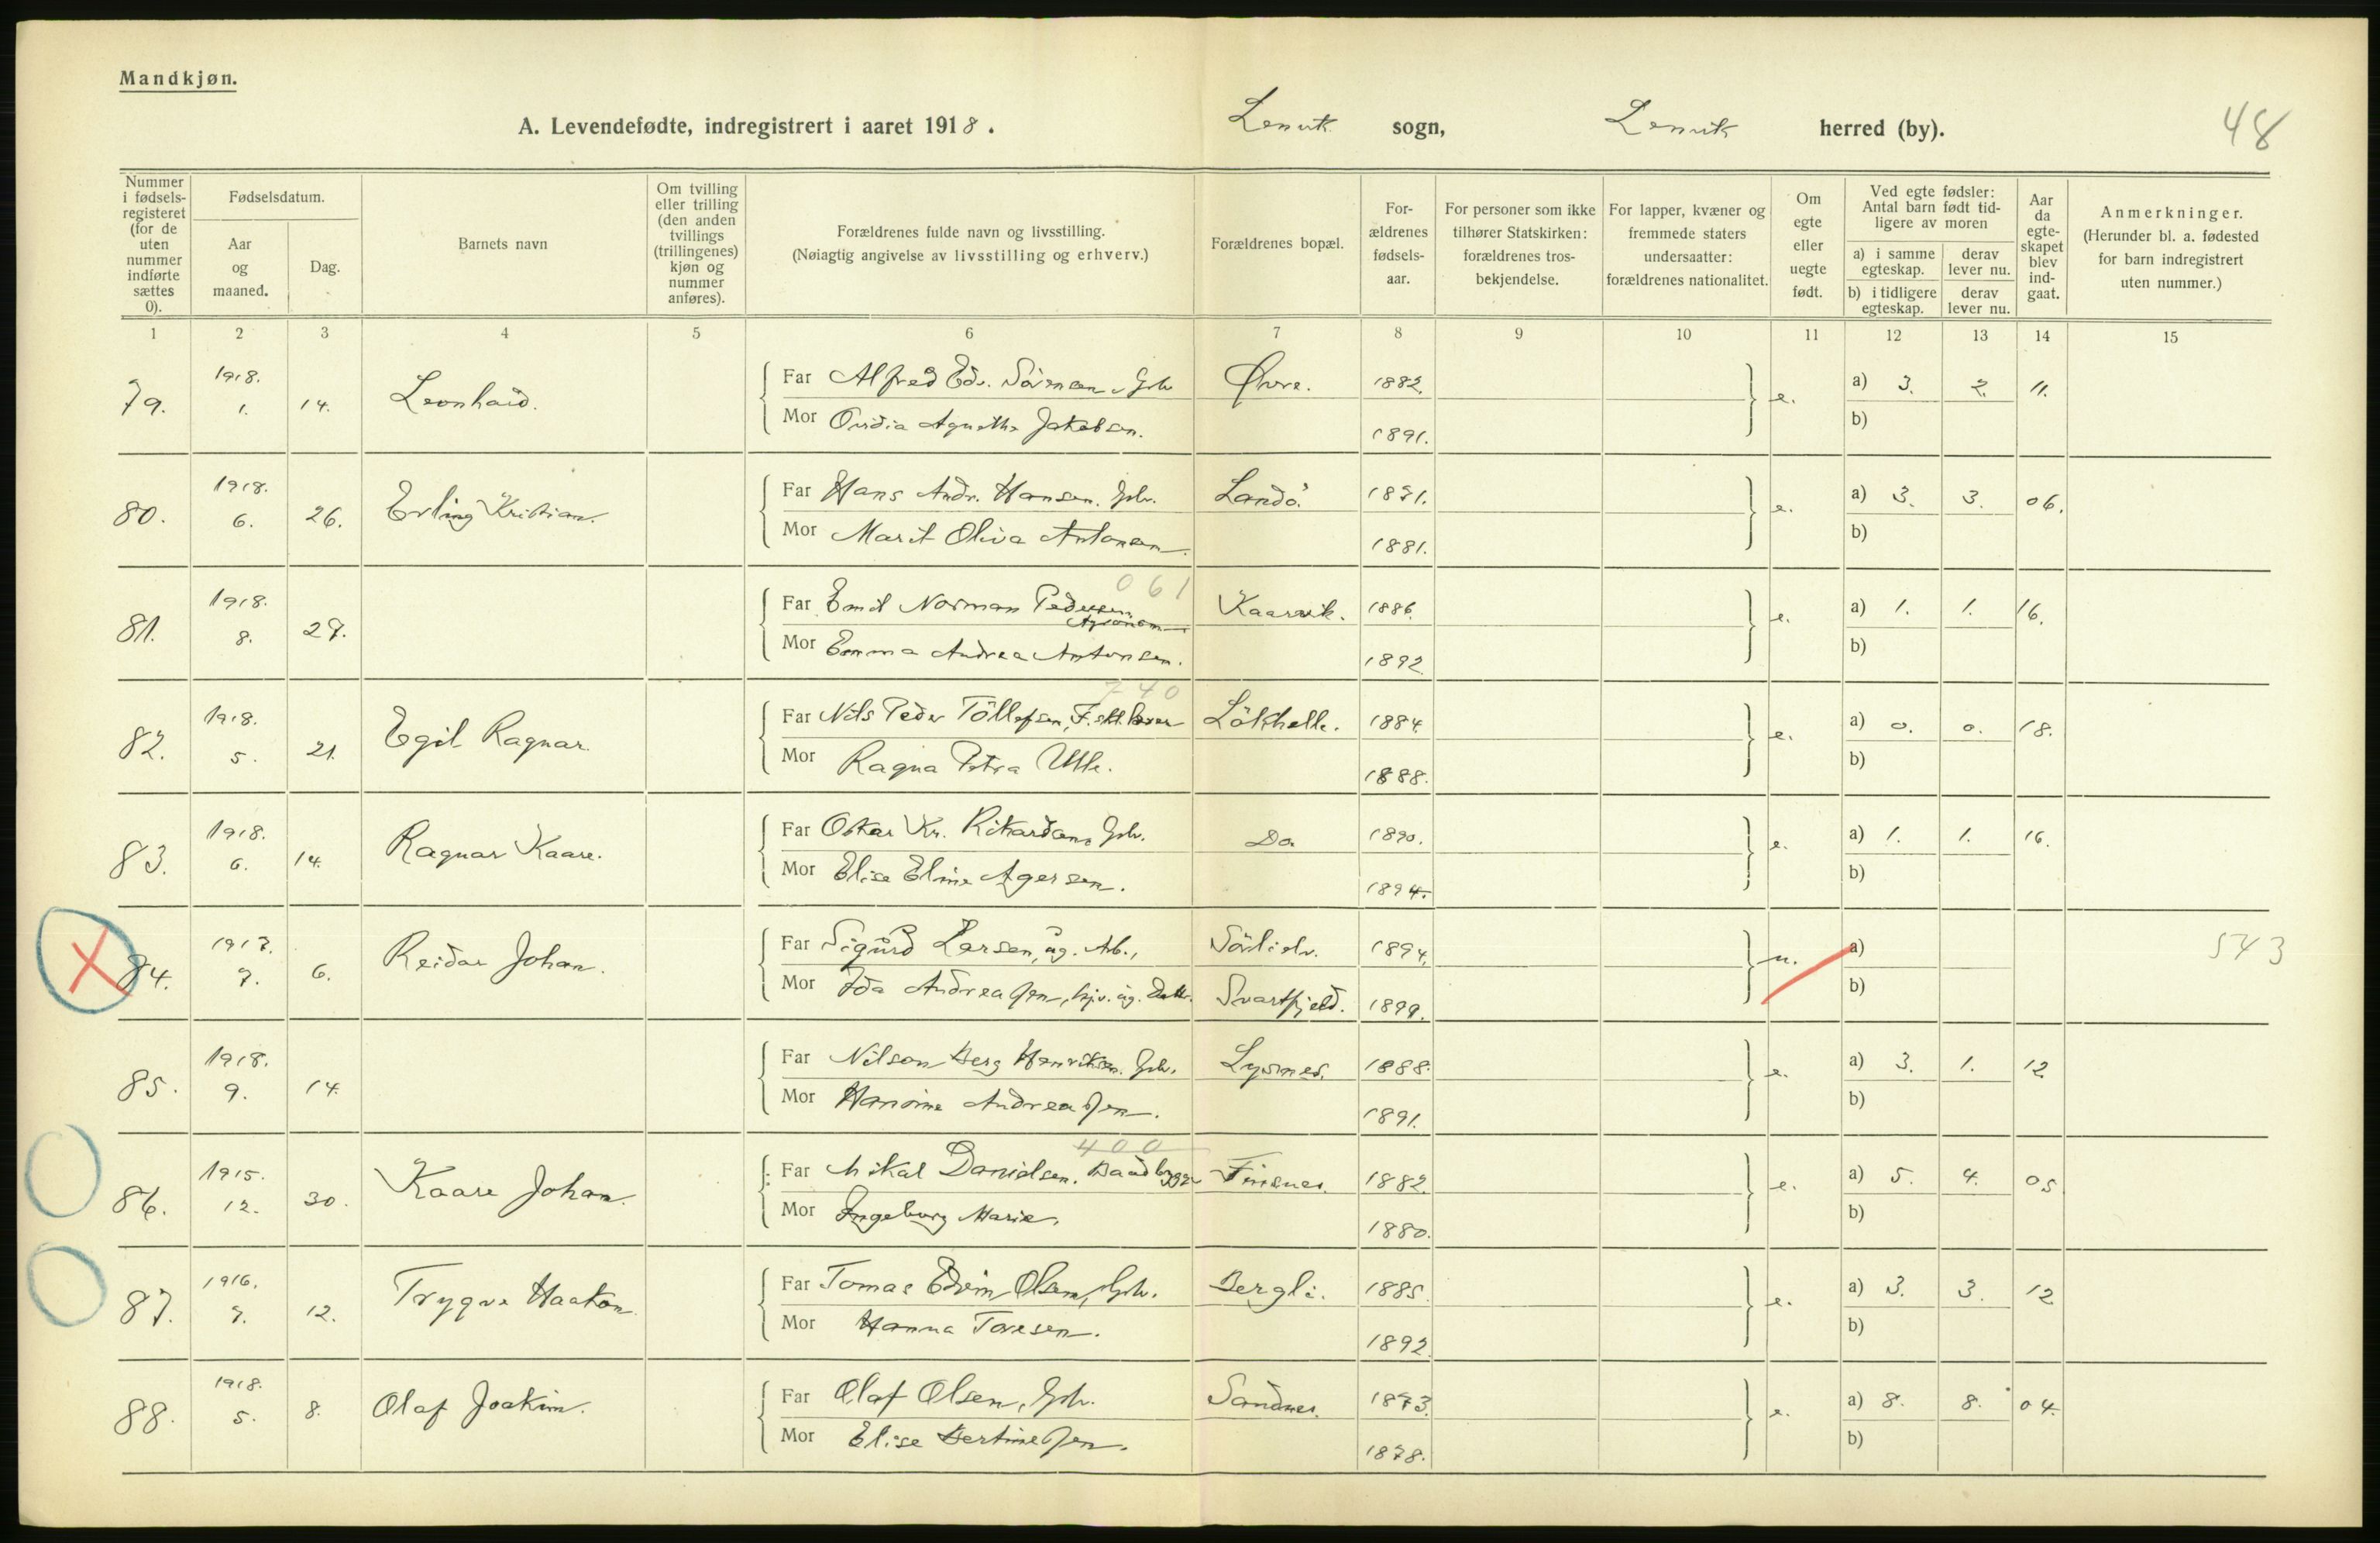 Mandkjøn.
A. Levendefødte, indregistrert i aaret 1918. Lenvik sogn, Lenvik herred (by). 48
Nummer i fødsels-registeret (for de uten nummer indførte sættes 0).
Fødselsdatum.
Aar og maaned.
Dag.
Barnets navn
Om tvilling eller trilling (den anden tvillings (trillingenes) kjøn og nummer anføres).
Forældrenes fulde navn og livsstilling.
(Nøiagtig angivelse av livsstilling og erhverv.)
Forældrenes bopæl.
For-ældrenes fødsels-aar.
For personer som ikke tilhører Statskirken: forældrenes tros-bekjendelse.
For lapper, kvæner og fremmede staters undersaatter: forældrenes nationalitet.
Om egte eller uegte født.
Ved egte fødsler: Antal barn født tid-ligere av moren
a) i samme egteskap. derav lever nu.
b) i tidligere egteskap. derav lever nu.
Aar da egte-skapet blev ind-gaat.
Anmerkninger.
(Herunder bl. a. fødested for barn indregistrert uten nummer.)
1 2 3 4 5 6 7 8 9 10 11 12 13 14 15
79. 1918. 1. 14. Leonhard. Far Alfred Edv. Sörensen, Gbr. Øvre. 1882. e. a) 3. 2. 11.
Mor Ovidia Agnethe Jakobsen. 1891. b)
80. 1918. 6. 26. Erling Kristian. Far Hans Andr. Hansen. Gbr. Landö. 1871. e. a) 3. 3. 06.
Mor Marit Oliva Antonsen. 1881. b)
061
81. 1918. 8. 27. Far Emil Norman Pedersen, Agronom Kaarvik. 1886. e. a) 1. 1. 16.
Mor Emma Andrea Antonsen. 1892 b)
740
82. 1918. 5. 21. Egil Ragnar. Far Nils Peder Töllefsen, Lökhelle. 1884. e. a) 0. 0. 18.
Mor Ragna Petra 1888. b)
83. 1918. 6. 14. Ragnar Kaare. Far Oskar Kr. Rikardsen, Gbr. Do 1890. e. a) 1. 1. 16.
Mor Elise Eline Agersen. 1894. b)
84. 1917. 7. 6. Reidar Johan. Far Sigurd Larsen, ug. Arb., Sörlielv. 1894. u. a) 543
Mor Ida Andreassen, hjv. ug. Datt. Svartfjeld. 1899. b)
85. 1918. 9. 14. Far Nilson Berg Henriksen. Gbr. Lysnes. 1888. e. a) 3. 1. 12
Mor Hansine Andreassen. 1891. b)
400
86. 1915. 12. 30. Kaare Johan. Far Mikal Danielsen. Baadbygger Finsnes. 1882. e. a) 5. 4. 05
Mor Ingeborg Marie. 1880. b)
87. 1916. 7. 12. Trygve Haakon. Far Tomas Edvin Olsen, Gbr. Bergli. 1885. e. a) 3. 3. 12
Mor Hanna Toresen. 1892. b)
88. 1918. 5. 8. Olaf Joakim. Far Olaf Olsen, Gbr. Sandnes. 1873. e. a) 8. 8. 04.
Mor Elise Bertinessen. 1878. b)